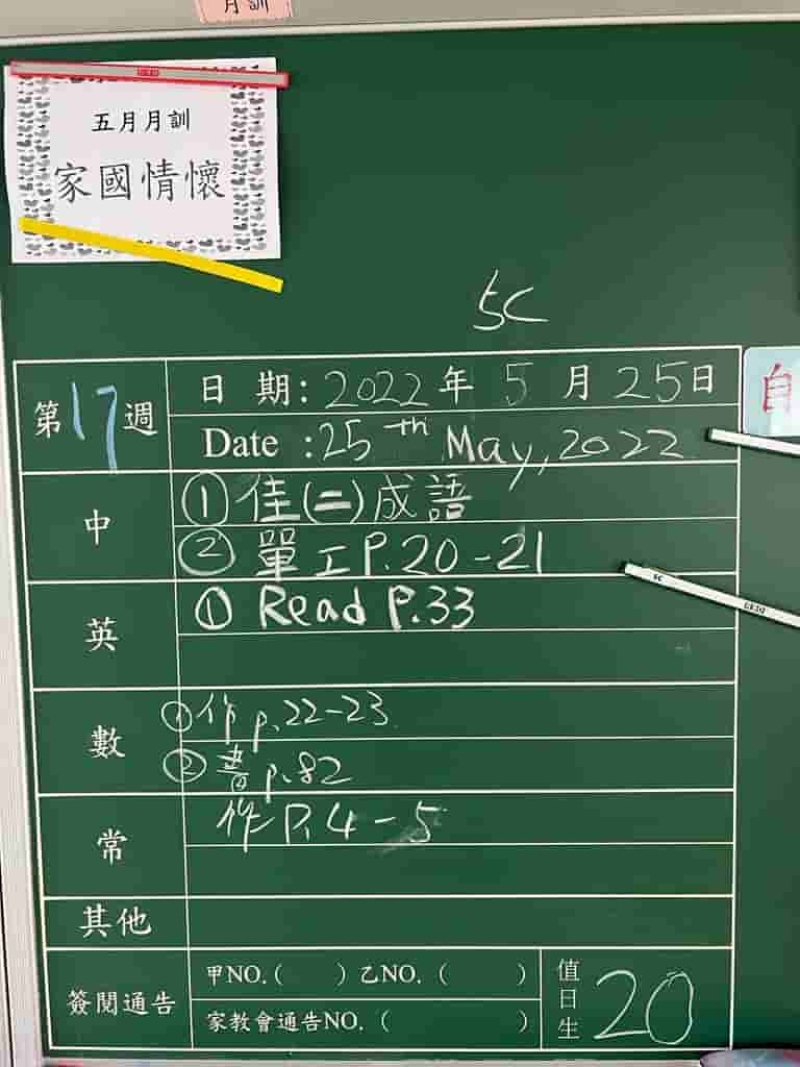 月訓
五月月訓
家國情懷
5C
第17週
日 期:2022年 5 月 25日
Date :25th May, 2022
中
①佳(二)成語
② 單工P.20-21
英
① Read P.33
數
①作 p.22-23
②書p.82
常
作P.4-5
其他
簽閱通告
甲NO.( )乙NO.( )
家教會通告NO.( )
值日生 20
自